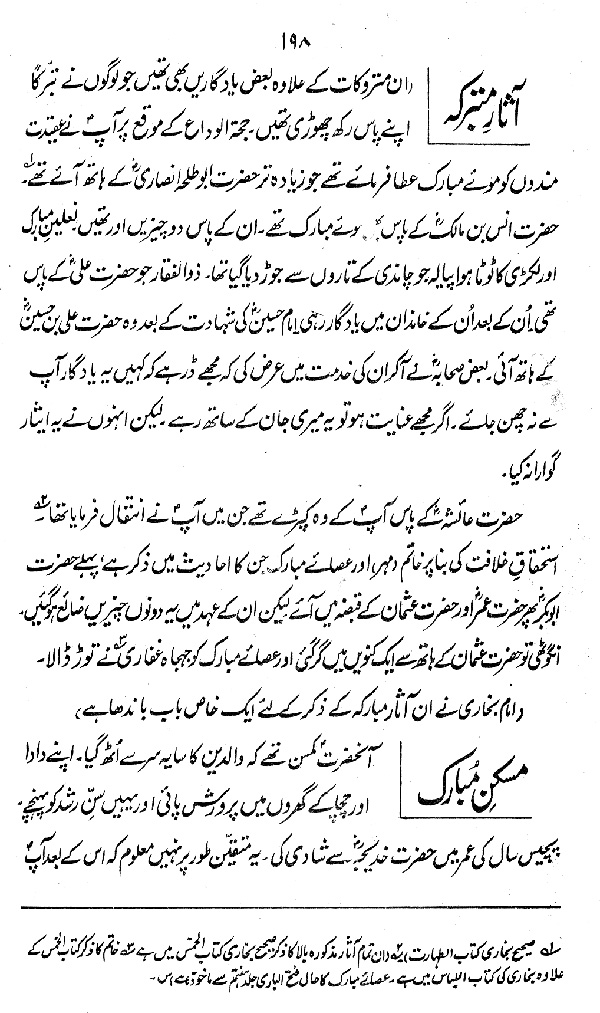 ۱۹۸
آثارِ متبرکہ
ان متروکات کے علاوہ بعض یادگاریں بھی تھیں جو لوگوں نے تبرّکاً
اپنے پاس رکھ چھوڑی تھیں۔ حجۃ الوداع کے موقع پر آپؐ نے عقیدت
مندوں کو موئے مبارک عطا فرمائے تھے جو زیادہ تر حضرت ابو طلحہ انصاریؓ کے ہاتھ آئے تھے۔
حضرت انس بن مالکؓ کے پاس موئے مبارک تھے۔ ان کے پاس دو چیزیں اور تھیں نعلینِ مبارک
اور لکڑی کا ٹوٹا ہوا پیالہ جو چاندی کے تاروں سے جوڑ دیا گیا تھا۔ ذوالفقار جو حضرت علیؓ کے پاس
تھی اُن کے بعد اُن کے خاندان میں یادگار رہی امام حسینؓ کی شہادت کے بعد وہ حضرت علی بن حسینؓ
کے ہاتھ آئی۔ بعض صحابہؓ نے آکر ان کی خدمت میں عرض کی کہ مجھے ڈر ہے کہ کہیں یہ یادگار آپ
سے نہ چھن جائے۔ اگر مجھے عنایت ہو تو یہ میری جان کے ساتھ رہے۔ لیکن انہوں نے یہ ایثار
گوارا نہ کیا۔
حضرت عائشہؓ کے پاس آپؐ کے وہ کپڑے تھے جن میں آپؐ نے انتقال فرمایا تھا ۲؎
استحقاقِ خلافت کی بنا پر خاتم (مہر) اور عصائے مبارک جن کا احادیث میں ذکر ہے، پہلے حضرت
ابوبکرؓ پھر حضرت عمرؓ اور حضرت عثمان کے قبضہ میں آئے لیکن ان کے عہد میں یہ دونوں چیزیں ضائع ہوگئیں۔
انگوٹھی تو حضرت عثمان کے ہاتھ سے ایک کنویں میں گر گئی اور عصائے مبارک کو جہجاہ غفاری نے توڑ ڈالا۔
(امام بخاری نے ان آثار مبارکہ کے ذکر کے لئے ایک خاص باب باندھا ہے)
مسکنِ مُبارک
آنحضرتؐ کمسن تھے کہ والدین کا سایہ سر سے اُٹھ گیا۔ اپنے دادا
اور چچا کے گھروں میں پرورش پائی اور یہیں سنِّ رشد کو پہنچے۔
پچیس سال کی عمر میں حضرت خدیجہؓ سے شادی کی۔ یہ متیقّن طور پر نہیں معلوم کہ اس کے بعد آپؐ
۱؎ صحیح بخاری کتاب الطہارت ۲؎ (ان تمام آثار مذکورہ بالا کا ذکر صحیح بخاری کتاب الخمس میں ہے ۳؎ خاتم کا ذکر کتاب الخمس کے
علاوہ بخاری کی کتاب اللباس میں ہے۔ عصائے مبارک کا حال فتح الباری جلد ہفتم سے ماخوذ ہے